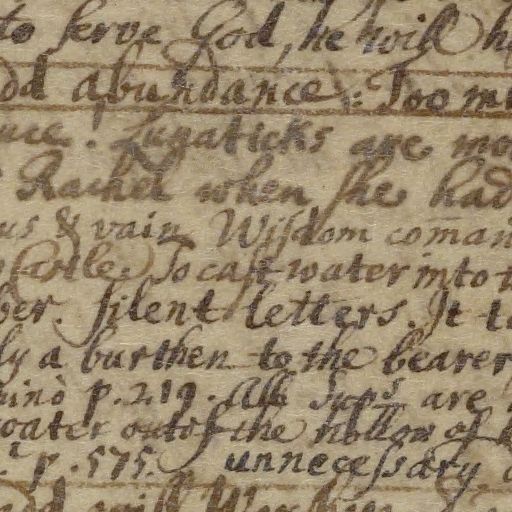 to serve God, he will h
od abundance: Too mu
uce. Lunaticks are mo
Rachel when she had
us & vain Wisdom coman
Castle. To cast water into t
ber. silent letters. It t
ly a burthen to the bearer
p. 219. All are
oater out of the hollow of
p. 575. unnecessary
will